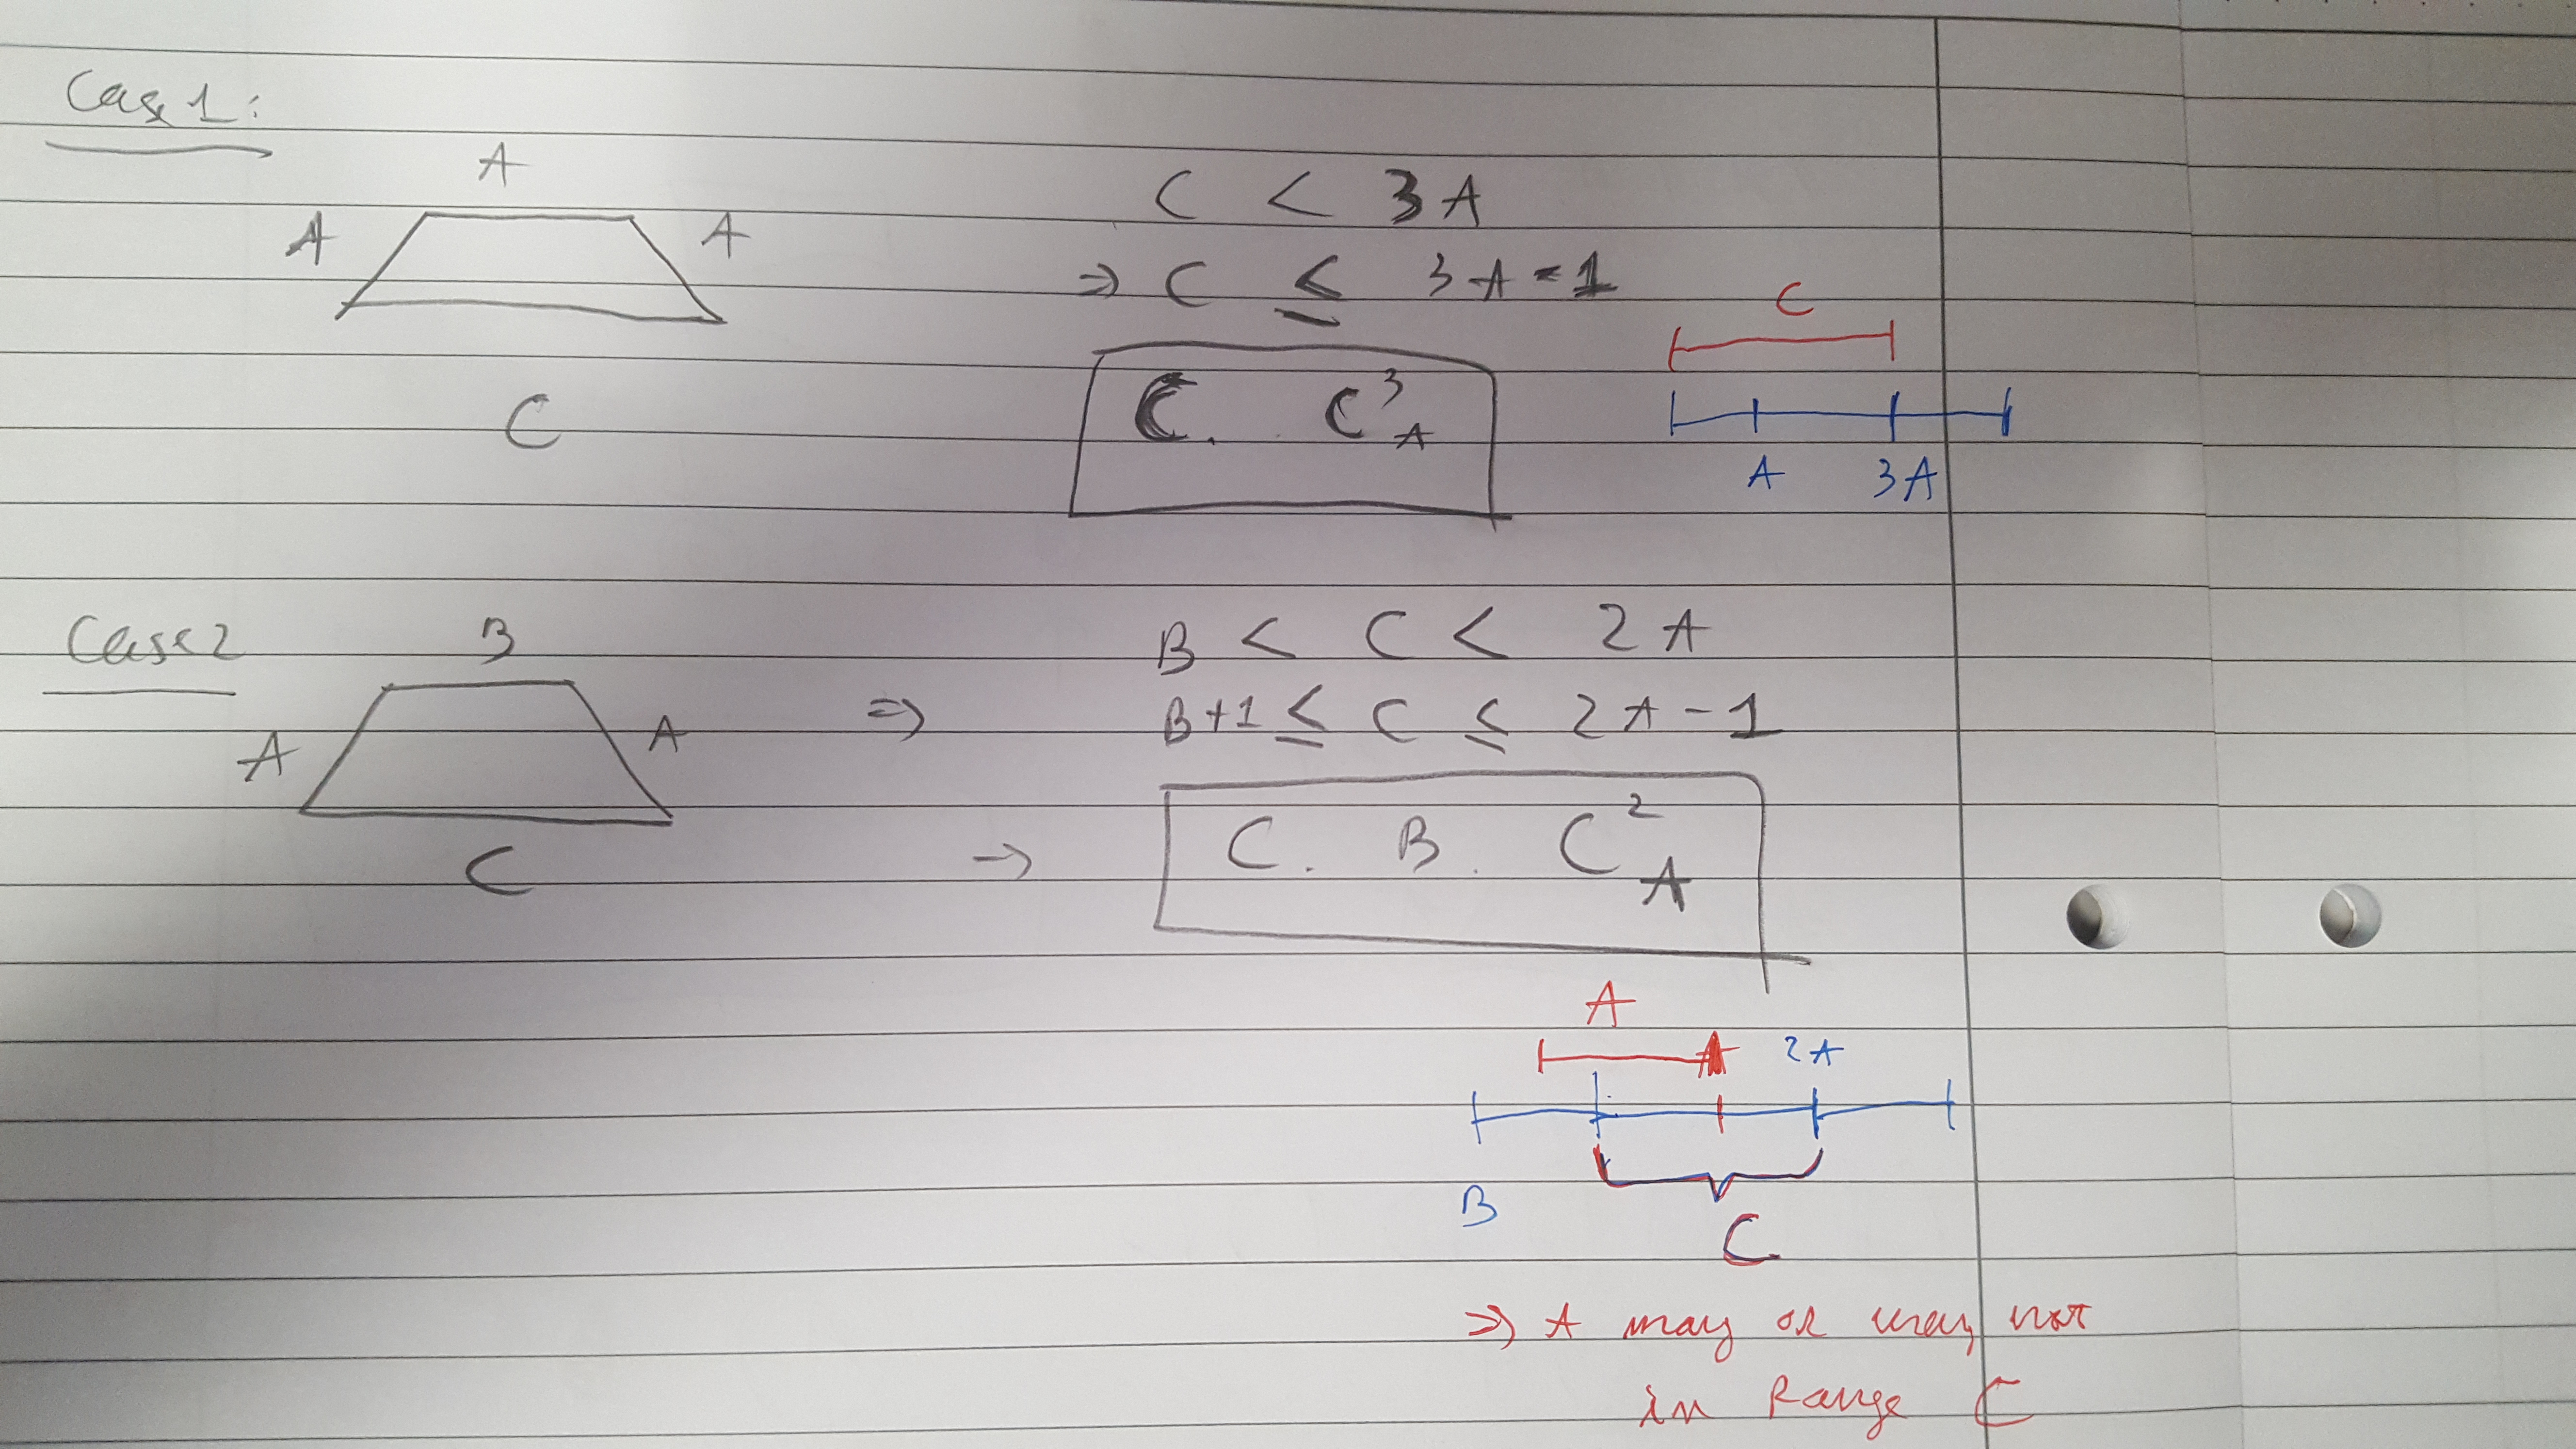 Case 1:
A A A
C
C < 3A
⇒ C ≤ 3A - 1
C . C³A
C
A 3A
Case 2
A B A
C
B < C < 2A
⇒ B+1 ≤ C ≤ 2A-1
⇒ C . B . C²A
A
2A
B
C
⇒ A may or may not
in Range C